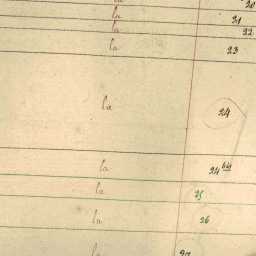 la 20
la 21
la 22
la 23
la 24
la 24
la 25
la 26
la 27